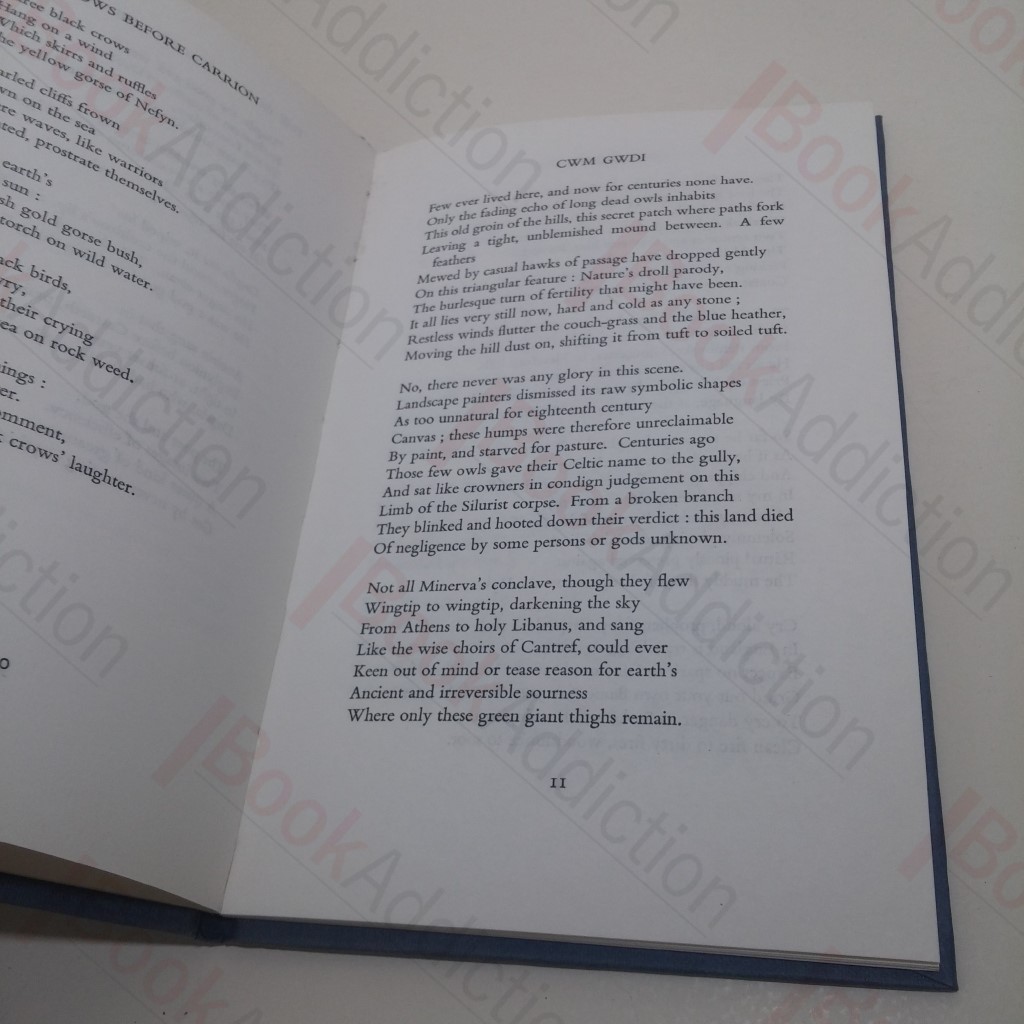 BEFORE CARRION
black crows
Hang on a wind
Which skirrs and ruffles
yellow gorse of Nefyn.
cliffs frown
on the sea
waves, like warriors
prostrate themselves.
earth's
sun :
gold gorse bush,
torch on wild water.
birds,
their crying
on rock weed.
crows' laughter.
CWM GWDI
Few ever lived here, and now for centuries none have.
Only the fading echo of long dead owls inhabits
This old groin of the hills, this secret patch where paths fork
Leaving a tight, unblemished mound between. A few
feathers
Mewed by casual hawks of passage have dropped gently
On this triangular feature : Nature's droll parody,
The burlesque turn of fertility that might have been.
It all lies very still now, hard and cold as any stone ;
Restless winds flutter the couch-grass and the blue heather,
Moving the hill dust on, shifting it from tuft to soiled tuft.
No, there never was any glory in this scene.
Landscape painters dismissed its raw symbolic shapes
As too unnatural for eighteenth century
Canvas ; these humps were therefore unreclaimable
By paint, and starved for pasture. Centuries ago
Those few owls gave their Celtic name to the gully,
And sat like crowners in condign judgement on this
Limb of the Silurist corpse. From a broken branch
They blinked and hooted down their verdict : this land died
Of negligence by some persons or gods unknown.
Not all Minerva's conclave, though they flew
Wingtip to wingtip, darkening the sky
From Athens to holy Libanus, and sang
Like the wise choirs of Cantref, could ever
Keen out of mind or tease reason for earth's
Ancient and irreversible sourness
Where only these green giant thighs remain.
11
BookAddiction